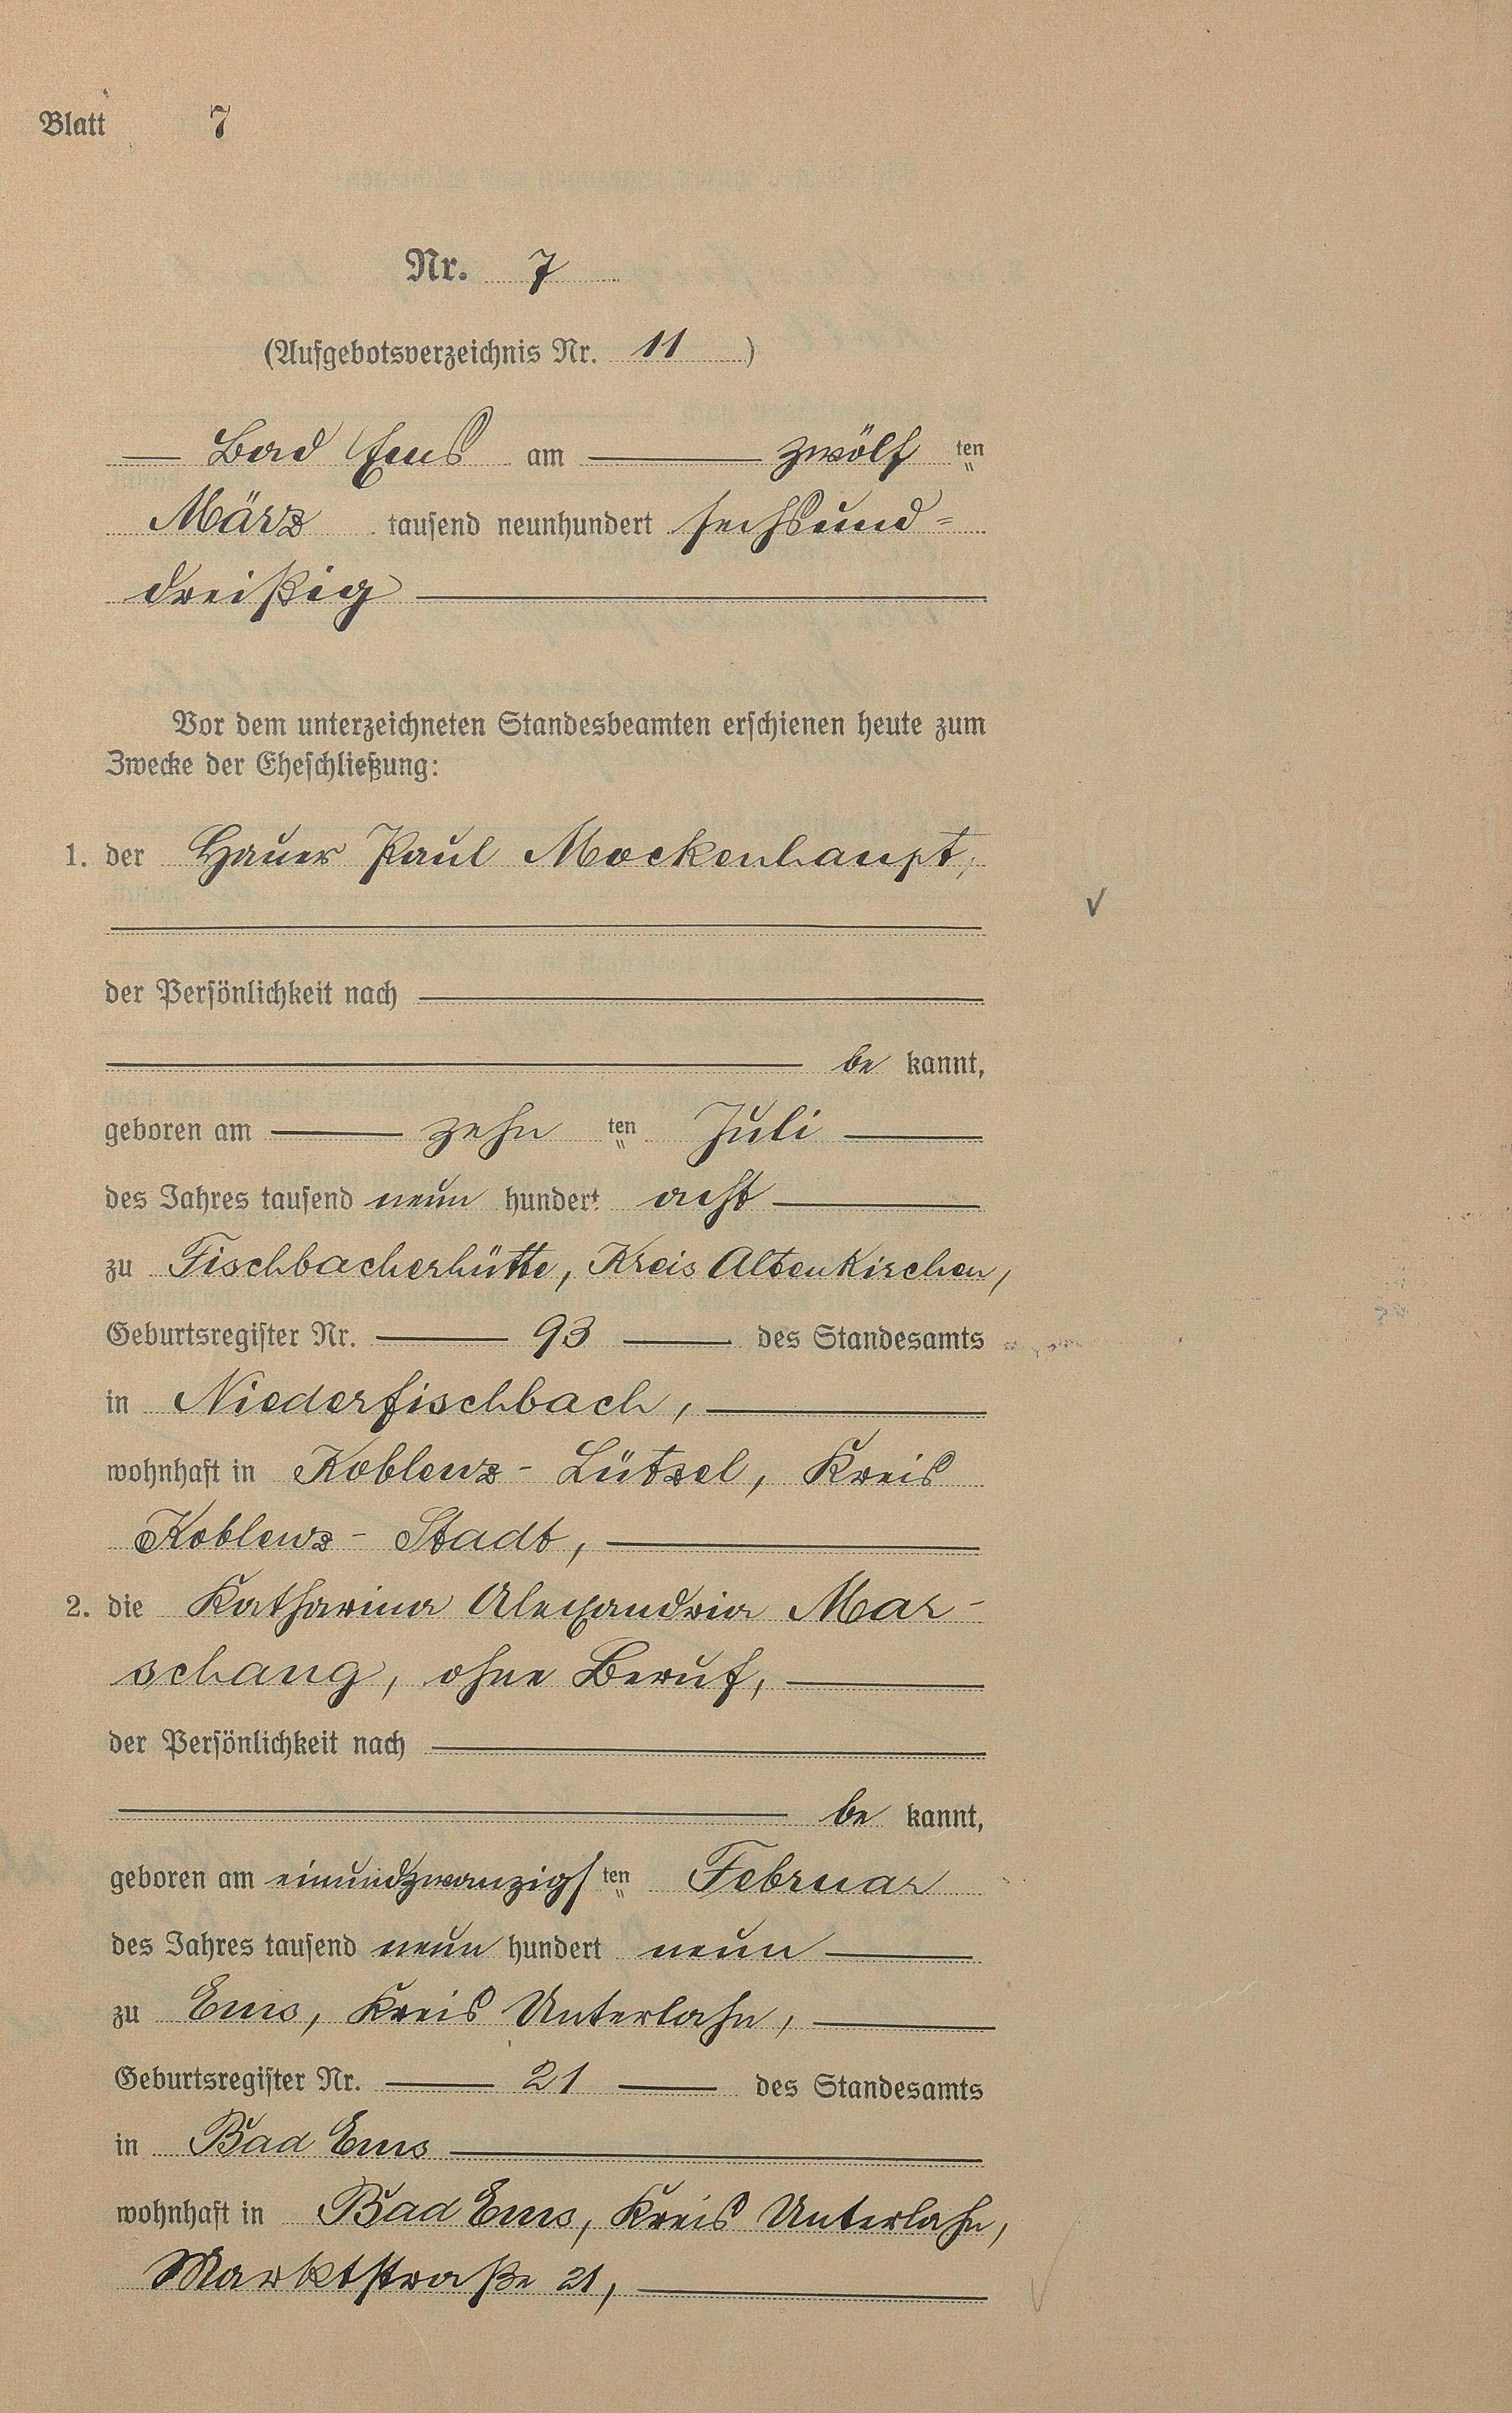 Blatt 7
Nr. 7
(Aufgebotsverzeichnis Nr. 11)
Bad Ems am zwölf ten
März tausend neunhundert sechsund-
dreißig
Vor dem unterzeichneten Standesbeamten erschienen heute zum
Zwecke der Eheschließung:
1. der Hauer Paul Mockenhaupt,
der Persönlichkeit nach
be kannt,
geboren am zehn ten Juli
des Jahres tausend neun hundert acht
zu Fischbacherhütte, Kreis Altenkirchen,
Geburtsregister Nr. 93 des Standesamts
in Niederfischbach,
wohnhaft in Koblenz-Lützel, Kreis
Koblenz-Stadt,
2. die Katharina Alexandria Mar-
schang, ohne Beruf,
der Persönlichkeit nach
be kannt,
geboren am einundzwanzigs ten Februar
des Jahres tausend neun hundert neun
zu Ems, Kreis Unterlahn,
Geburtsregister Nr. 21 des Standesamts
in Bad Ems
wohnhaft in Bad Ems, Kreis Unterlahn,
Marktstraße 21,